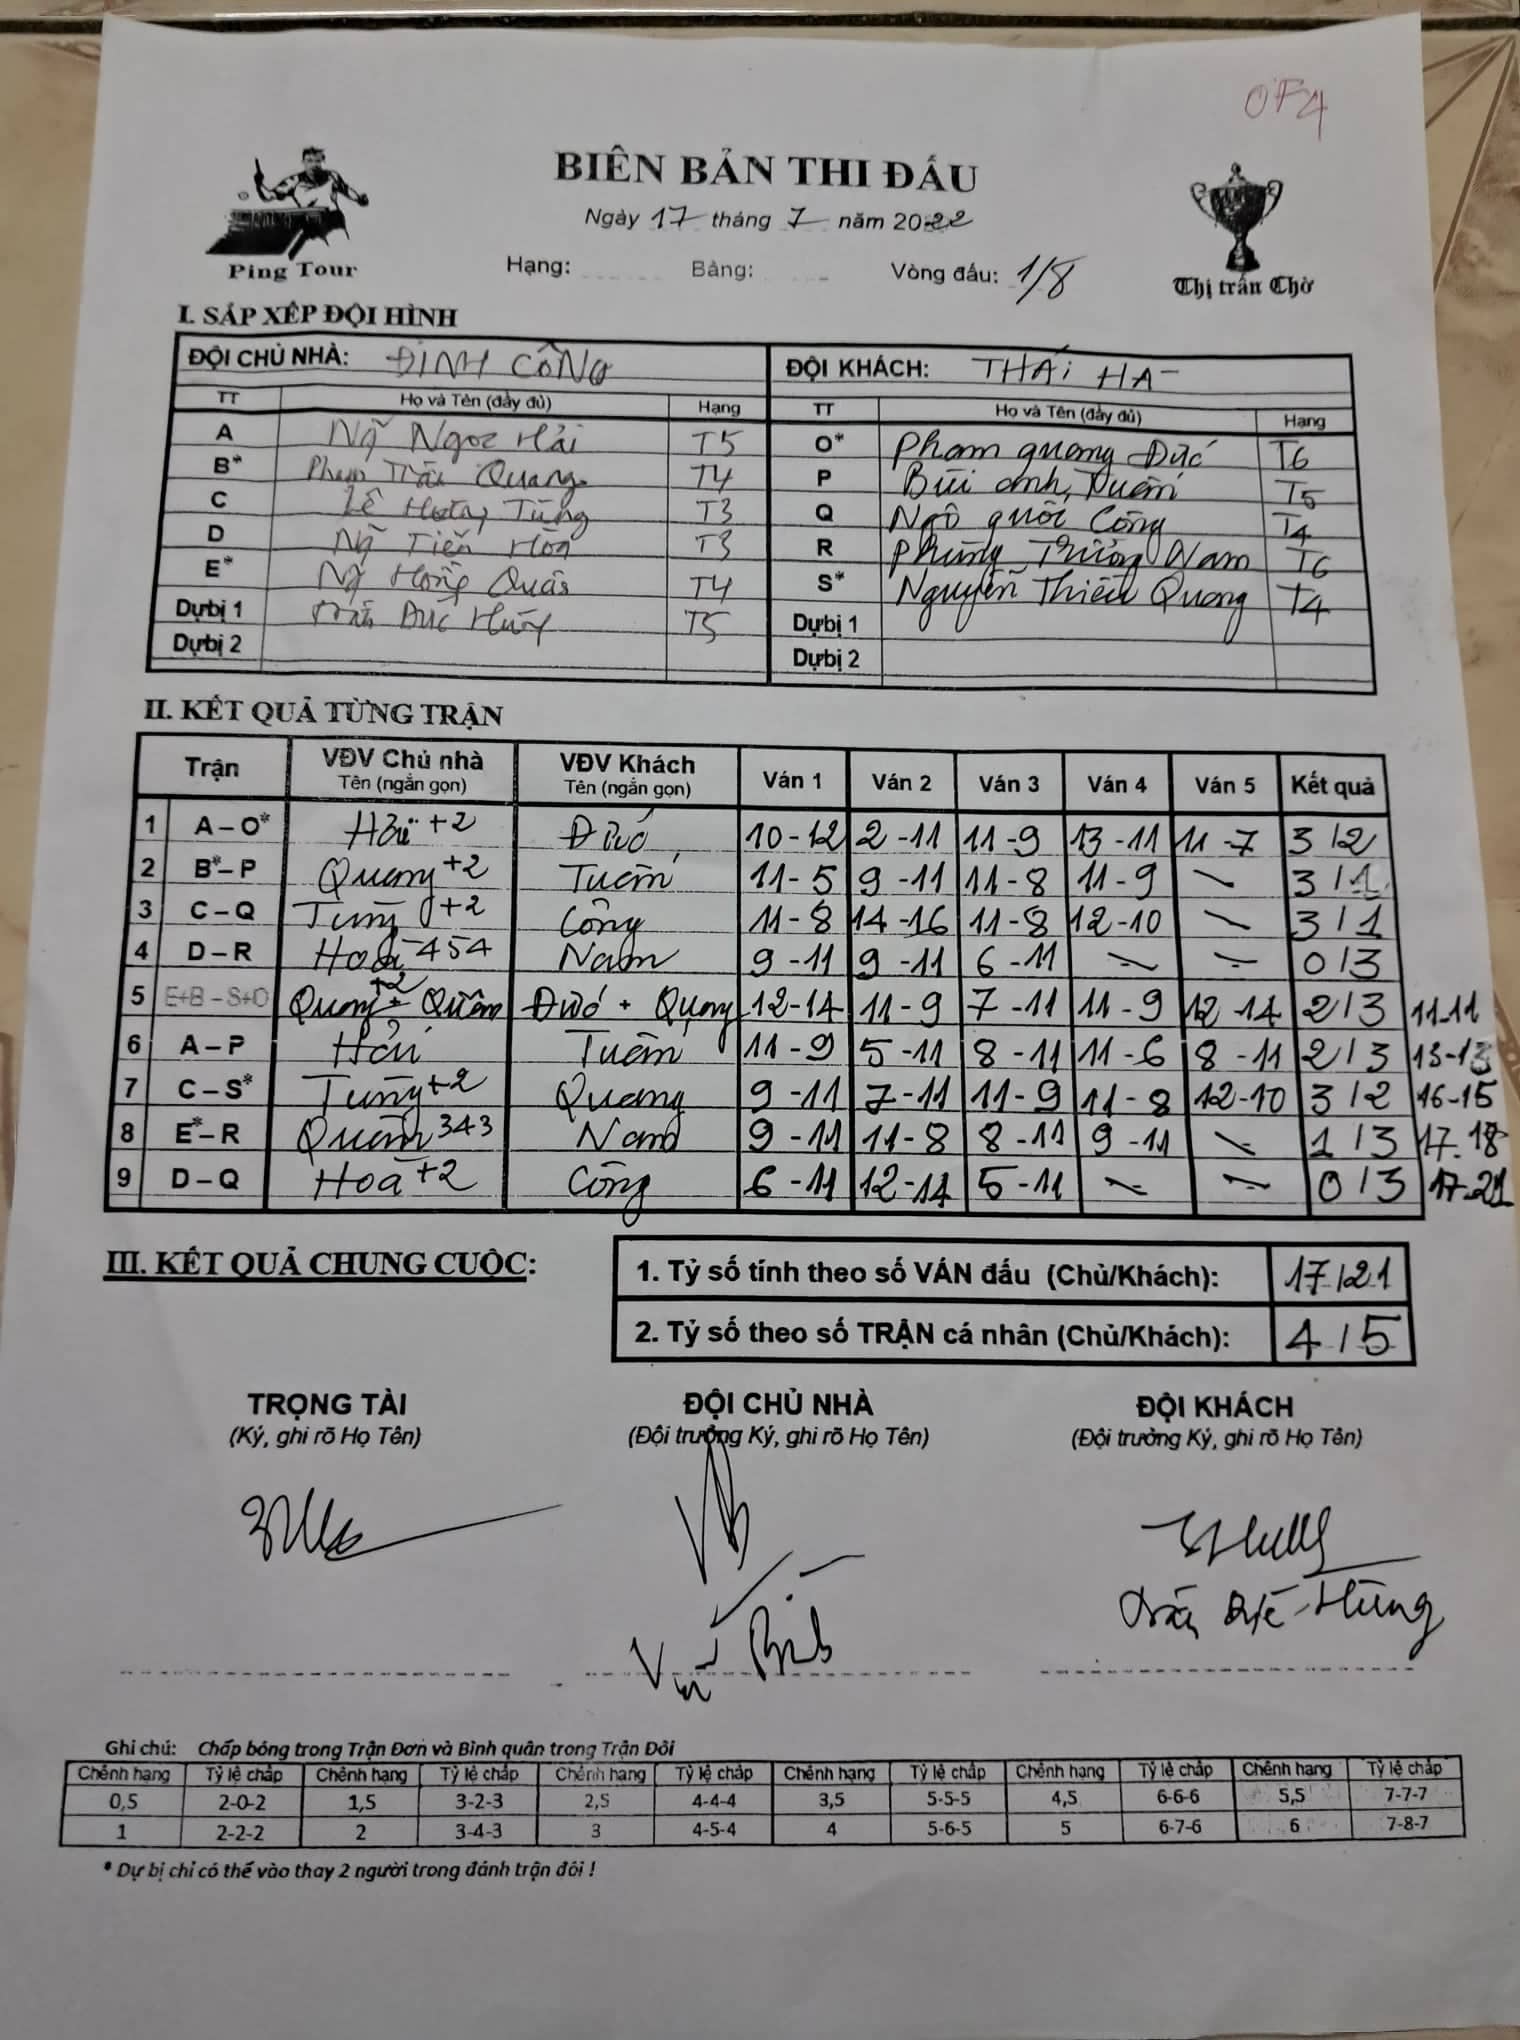 OF4
BIÊN BẢN THI ĐẤU
Ngày 17 tháng 7 năm 2022
Hạng: Bảng: Vòng đấu: 1/8
Ping Tour
Thị trấn Chờ
I. SẮP XẾP ĐỘI HÌNH
ĐỘI CHỦ NHÀ: ĐỊNH CÔNG ĐỘI KHÁCH: THÁI HÀ
TT Họ và Tên (đầy đủ) Hạng TT Họ và Tên (đầy đủ) Hạng
A Ng Ngọc Hải T5 O* Phạm quang Đức T6
B* Phạm Trần Quang T4 P Bùi anh Tuấn T5
C Lê Tùng T3 Q Ngô quốc Công T4
D Ng Tiến Hòa T3 R Phùng Trường Nam T6
E* Ng Hồng Quân T4 S* Nguyễn Thiều Quang T4
Dự bị 1 Trần Đức Hùng T5 Dự bị 1
Dự bị 2 Dự bị 2
II. KẾT QUẢ TỪNG TRẬN
Trận VĐV Chủ nhà VĐV Khách Ván 1 Ván 2 Ván 3 Ván 4 Ván 5 Kết quả
Tên (ngắn gọn) Tên (ngắn gọn)
1 A – O* Hải +2 Đức 10-12 2-11 11-9 13-11 11-7 3/2
2 B* – P Quang +2 Tuấn 11-5 9-11 11-8 11-9 - 3/1
3 C – Q Tùng +2 Công 11-8 14-16 11-8 12-10 - 3/1
4 D – R Hoà 454 Nam 9-11 9-11 6-11 - - 0/3
5 E+B – S+O Quang +2 + Quân Đức + Quang 12-14 11-9 7-11 11-9 12-14 2/3 11-11
6 A – P Hải Tuấn 11-9 5-11 8-11 11-6 8-11 2/3 13-13
7 C – S* Tùng +2 Quang 9-11 7-11 11-9 11-8 12-10 3/2 16-15
8 E* – R Quân 343 Nam 9-11 11-8 8-11 9-11 - 1/3 17-18
9 D – Q Hoà +2 Công 6-11 12-14 5-11 - - 0/3 17-21
III. KẾT QUẢ CHUNG CUỘC:
1. Tỷ số tính theo số VÁN đấu (Chủ/Khách): 17/21
2. Tỷ số theo số TRẬN cá nhân (Chủ/Khách): 4/5
TRỌNG TÀI ĐỘI CHỦ NHÀ ĐỘI KHÁCH
(Ký, ghi rõ Họ Tên) (Đội trưởng Ký, ghi rõ Họ Tên) (Đội trưởng Ký, ghi rõ Họ Tên)
Hùng
Ghi chú: Chấp bóng trong Trận Đơn và Bình quân trong Trận Đôi
Chênh hạng Tỷ lệ chấp Chênh hạng Tỷ lệ chấp Chênh hạng Tỷ lệ chấp Chênh hạng Tỷ lệ chấp Chênh hạng Tỷ lệ chấp Chênh hạng Tỷ lệ chấp
0,5 2-0-2 1,5 3-2-3 2,5 4-4-4 3,5 5-5-5 4,5 6-6-6 5,5 7-7-7
1 2-2-2 2 3-4-3 3 4-5-4 4 5-6-5 5 6-7-6 6 7-8-7
* Dự bị chỉ có thể vào thay 2 người trong đánh trận đôi !